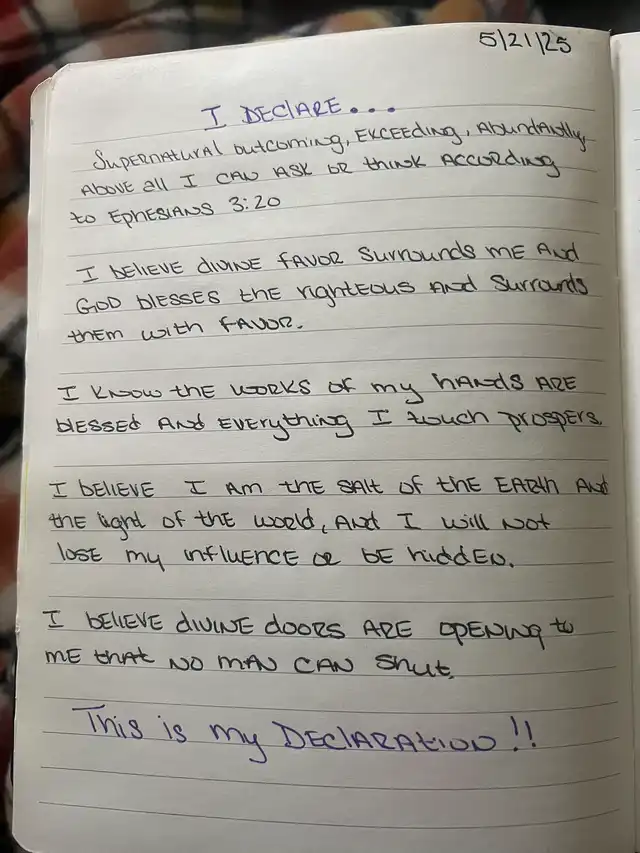 5/21/25
I DEClARE...
SUPERNATURAl outcoming, EXCEEding, AbundANtly,
Above all I CAN ASK OR think ACCORding
to EphESIANS 3:20
I bElIEVE divINE fAVOR SurrouNds mE ANd
GOD blESSES the righteous ANd SurrouNds
thEm with fAVOR.
I KNOW the WORKS Of my hANdS ARE
blESSEd ANd EVERything I touch prospERS.
I bElIEVE I Am the SAlt of the EARth ANd
the light of the world, ANd I will Not
losE my iNfluENCE OR bE hiddEN.
I bElIEVE divINE doors ARE OpENiNg to
mE that NO mAN CAN Shut.
This is my DEClARAtiON!!